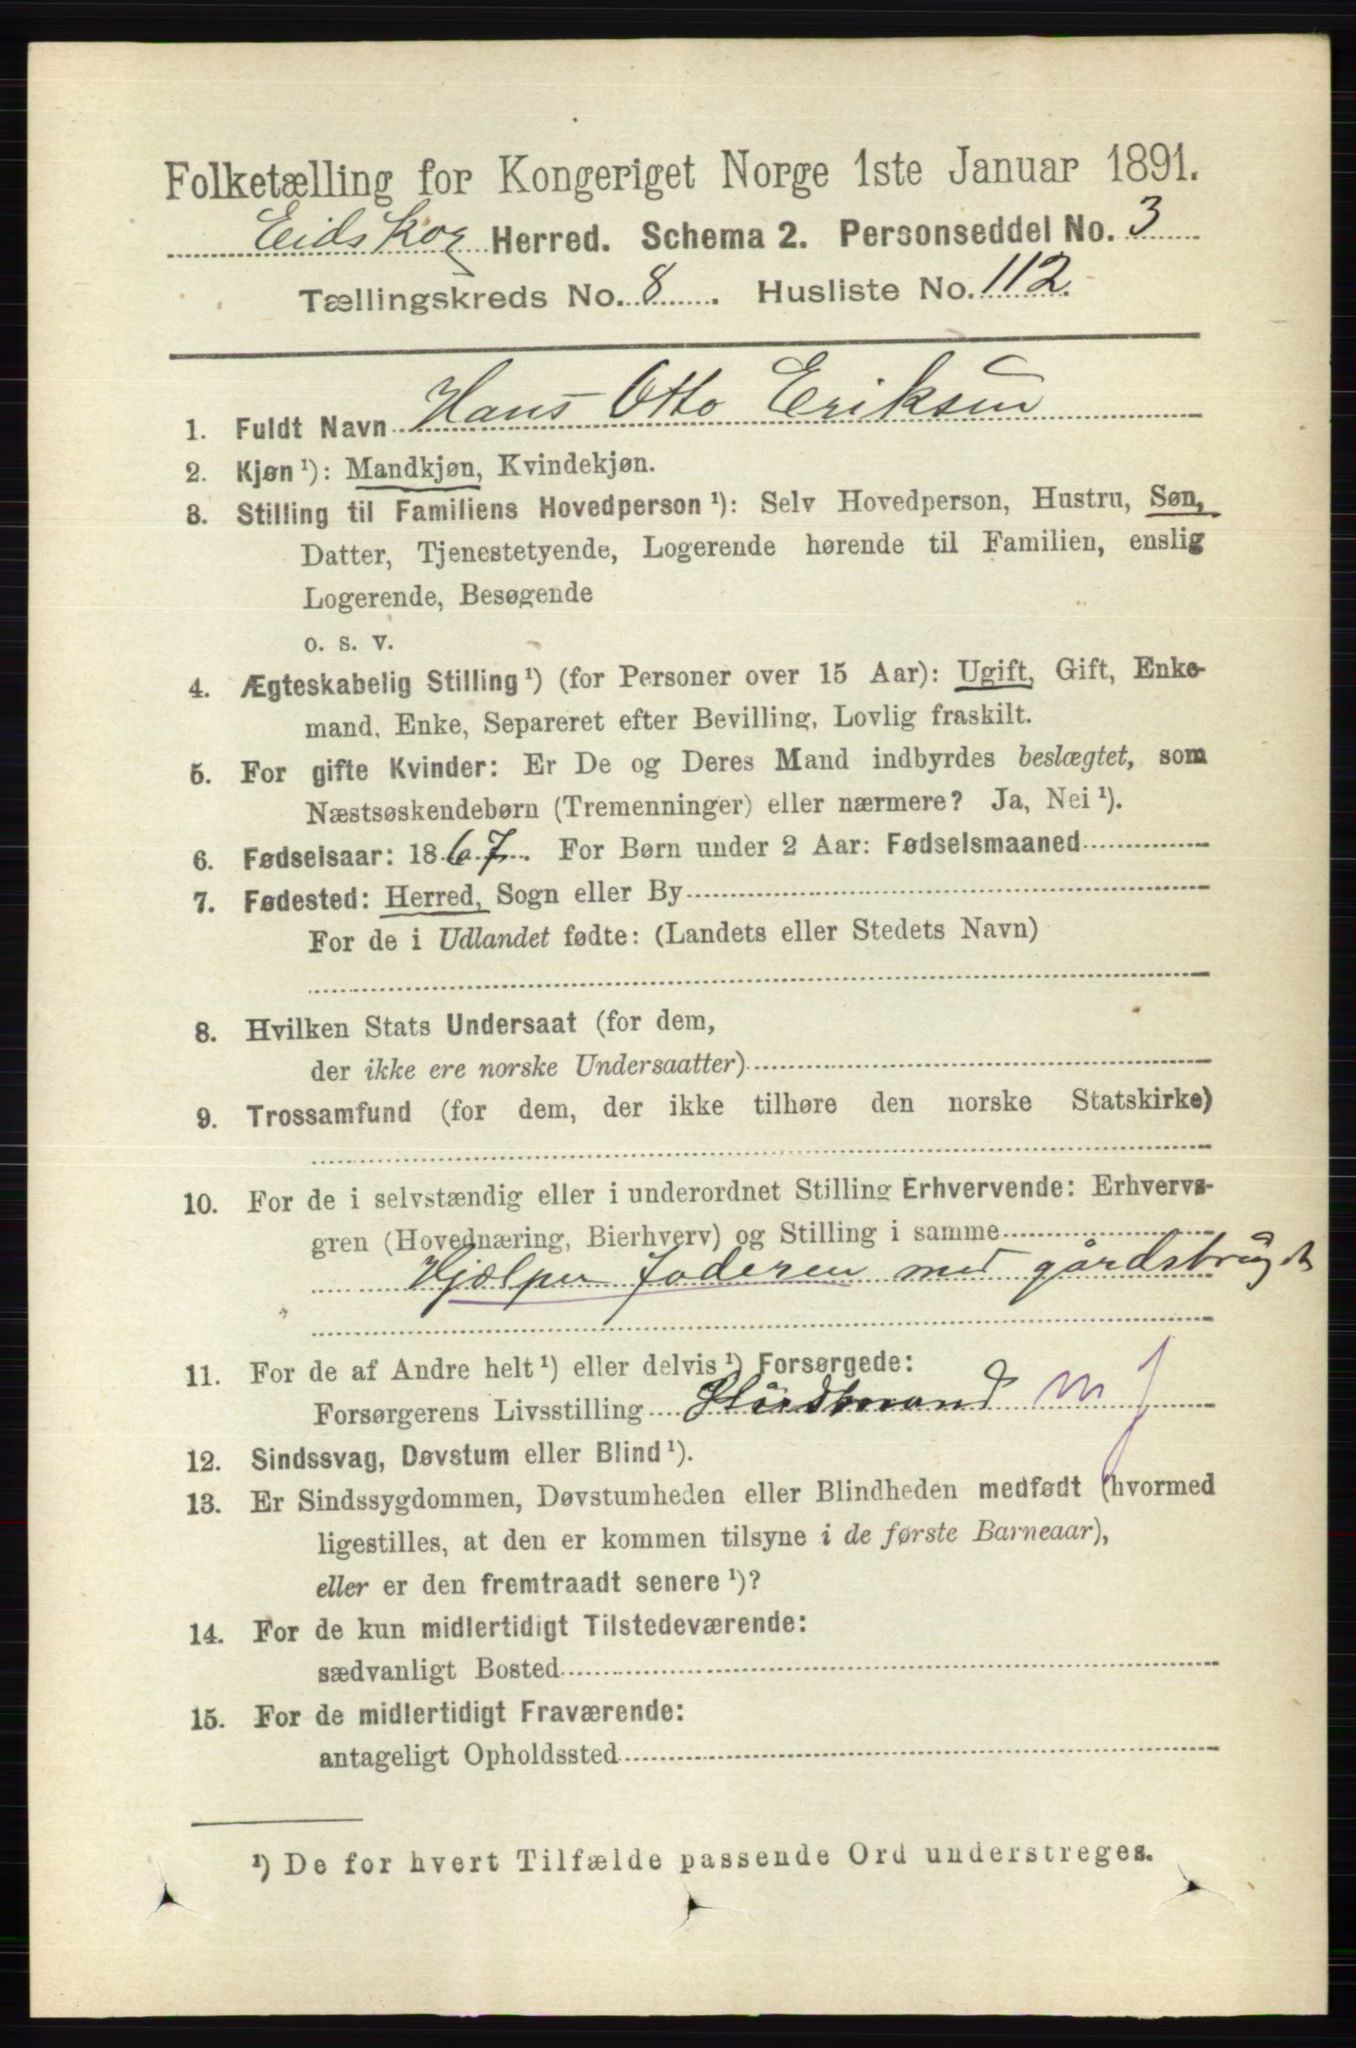 Folketælling for Kongeriget Norge 1ste Januar 1891.
Eidskog Herred. Schema 2. Personseddel No. 3
Tællingskreds No. 8. Husliste No. 112.
1. Fuldt Navn Hans Otto Eriksen
2. Kjøn¹): Mandkjøn, Kvindekjøn.
3. Stilling til Familiens Hovedperson¹): Selv Hovedperson, Hustru, Søn,
Datter, Tjenestetyende, Logerende hørende til Familien, enslig
Logerende, Besøgende
o. s. v.
4. Ægteskabelig Stilling¹) (for Personer over 15 Aar): Ugift, Gift, Enke-
mand, Enke, Separeret efter Bevilling, Lovlig fraskilt.
5. For gifte Kvinder: Er De og Deres Mand indbyrdes beslægtet, som
Næstsøskendebørn (Tremenninger) eller nærmere? Ja, Nei¹).
6. Fødselsaar: 1867. For Børn under 2 Aar: Fødselsmaaned
7. Fødested: Herred, Sogn eller By
For de i Udlandet fødte: (Landets eller Stedets Navn)
8. Hvilken Stats Undersaat (for dem,
der ikke ere norske Undersaatter)
9. Trossamfund (for dem, der ikke tilhøre den norske Statskirke)
10. For de i selvstændig eller i underordnet Stilling Erhvervende: Erhvervs-
gren (Hovednæring, Bierhverv) og Stilling i samme
Hjælper faderen med gårdsbruget
11. For de af Andre helt¹) eller delvis¹) Forsørgede:
Forsørgerens Livsstilling mf
12. Sindssvag, Døvstum eller Blind¹).
13. Er Sindssygdommen, Døvstumheden eller Blindheden medfødt (hvormed
ligestilles, at den er kommen tilsyne i de første Barneaar),
eller er den fremtraadt senere¹)?
14. For de kun midlertidigt Tilstedeværende:
sædvanligt Bosted
15. For de midlertidigt Fraværende:
antageligt Opholdssted
¹) De for hvert Tilfælde passende Ord understreges.